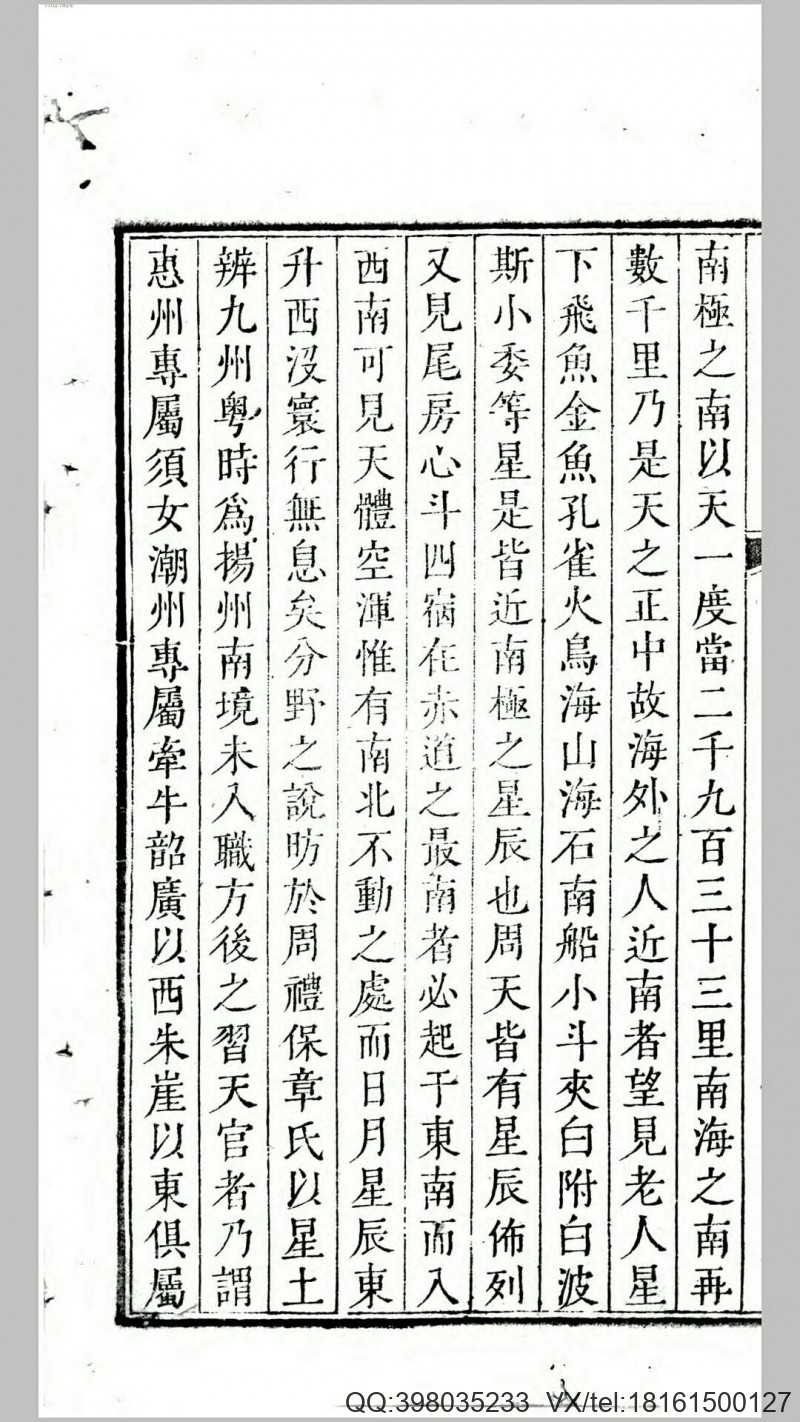 南極之南以天一度當二千九百三十三里南海之南再
數千里乃是天之正中故海外之人近南者望見老人星
下飛魚金魚孔雀火鳥海山海石南船小斗夾白附白波
斯小委等星是皆近南極之星辰也周天皆有星辰佈列
又見尾房心斗四宿在赤道之最南者必起于東南而入
西南可見天體空渾惟有南北不動之處而日月星辰東
升西沒寰行無息矣分野之說昉於周禮保章氏以星土
辨九州粵時為揚州南境未入職方後之習天官者乃謂
惠州專屬須女潮州專屬牽牛韶廣以西朱崖以東俱屬
QQ:398035233 VX/tel:18161500127